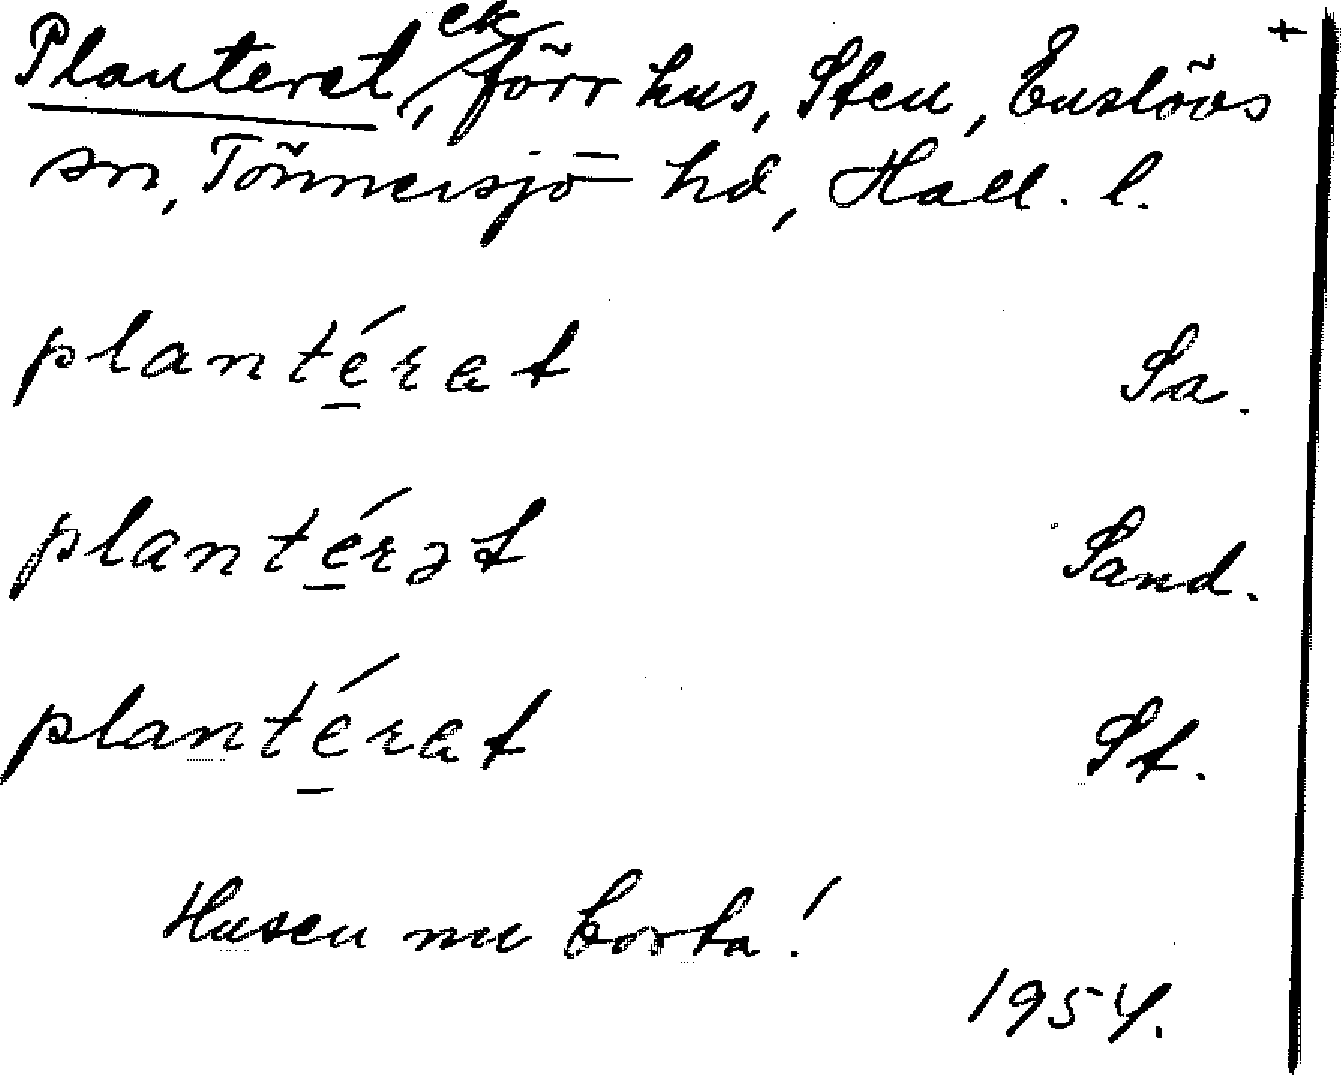 Planterat, ek förr hus, Sten, Enslövs +
sn, Tönnersjö hd, Hall. l.
plantérat Sa.
plantérət Sand.
plantérat St.
Husen nu borta!
1954.